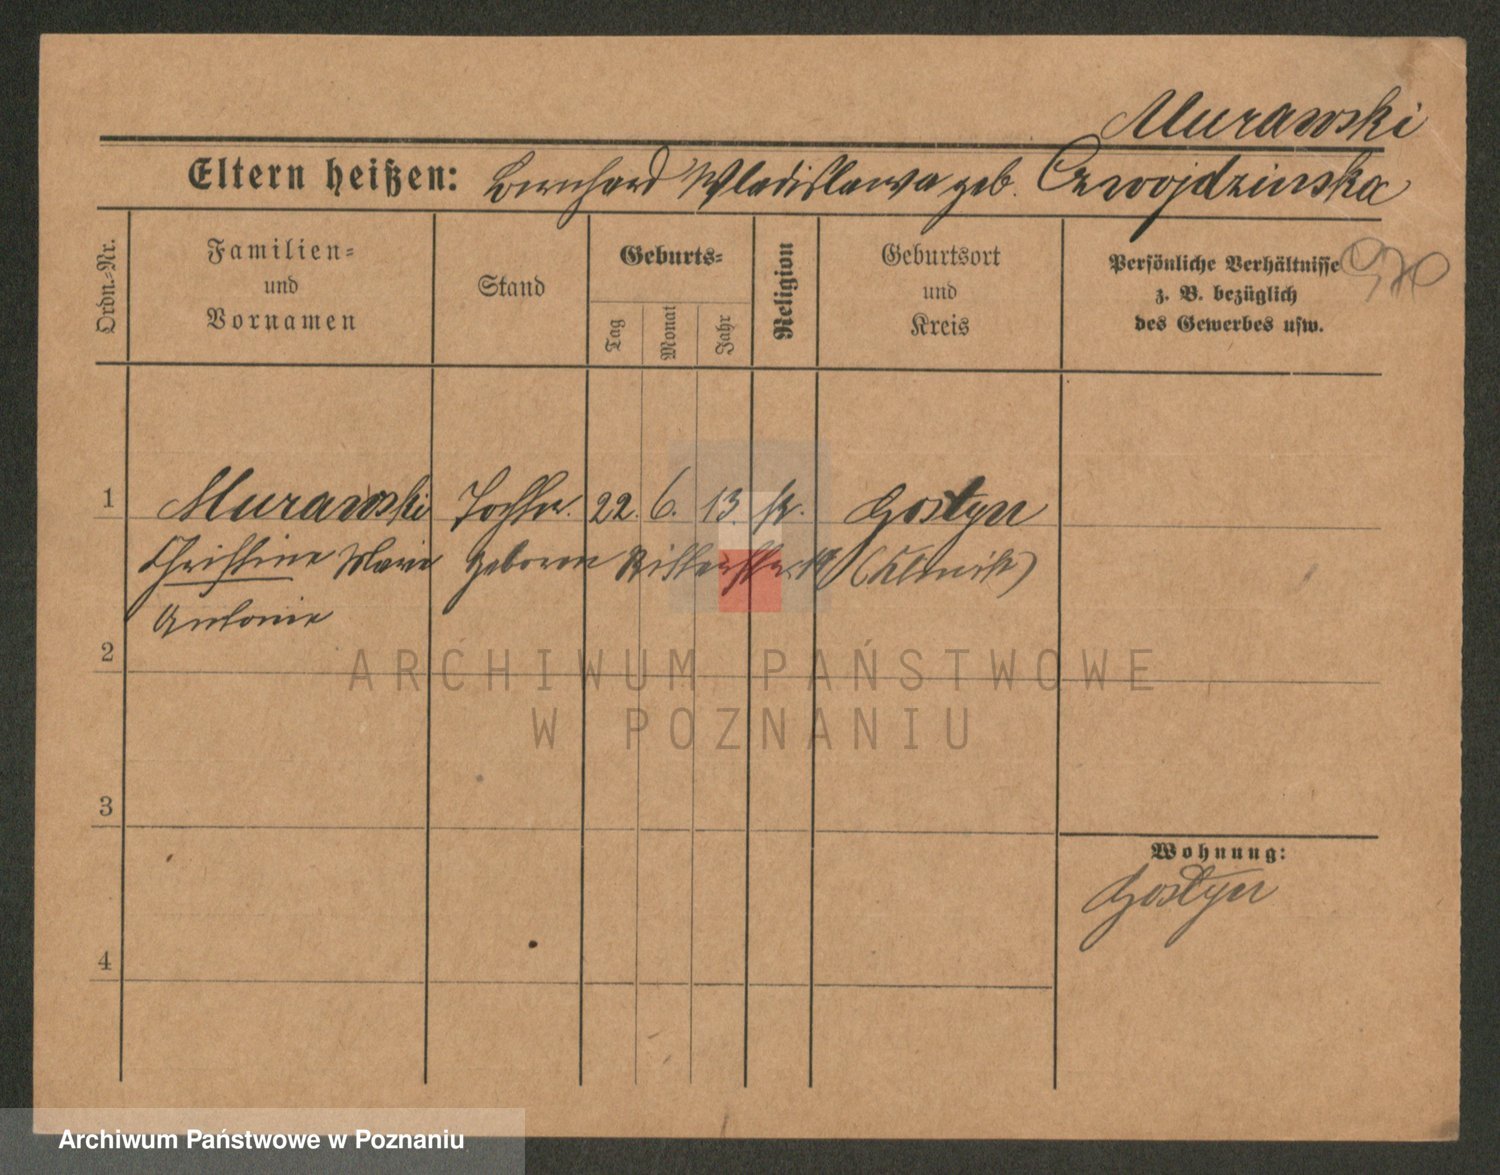 Murawski
Eltern heißen: Bernhard Wladislawa geb. Czwojdzinska
Ordn.-Nr.
Familien-
und
Vornamen
Stand
Geburts-
Tag
Monat
Jahr
Religion
Geburtsort
und
Kreis
Persönliche Verhältnisse
z. B. bezüglich
des Gewerbes usw.
1 Murawski Tochter. 22. 6. 13. k. Gostyn
Christine Marie geboren Ritterstr. 19 (Klinik)
Antonie
2
3
4
Wohnung:
Gostyn
ARCHIWUM PAŃSTWOWE
W POZNANIU
Archiwum Państwowe w Poznaniu